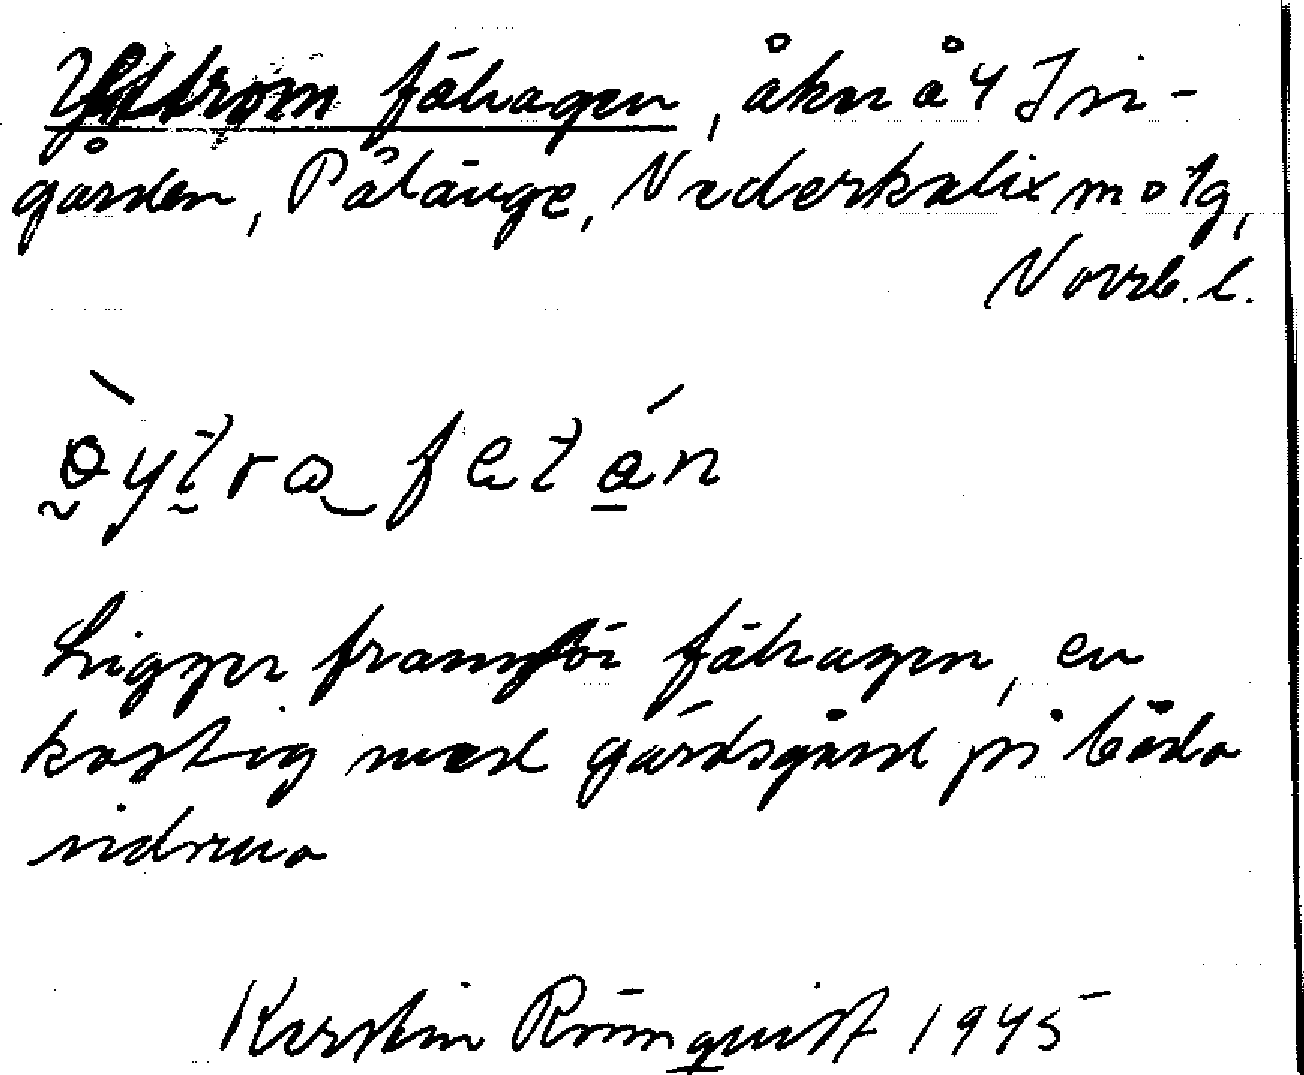 Yttrom fähagen, åkn å 4 In-
gården, Pålänge, Nederkalix m o tg,
Norrb. l.
Ligger framför fähagen, en
kostig med gärdsgård på båda
sidorna
Kerstin Rönnquist 1945